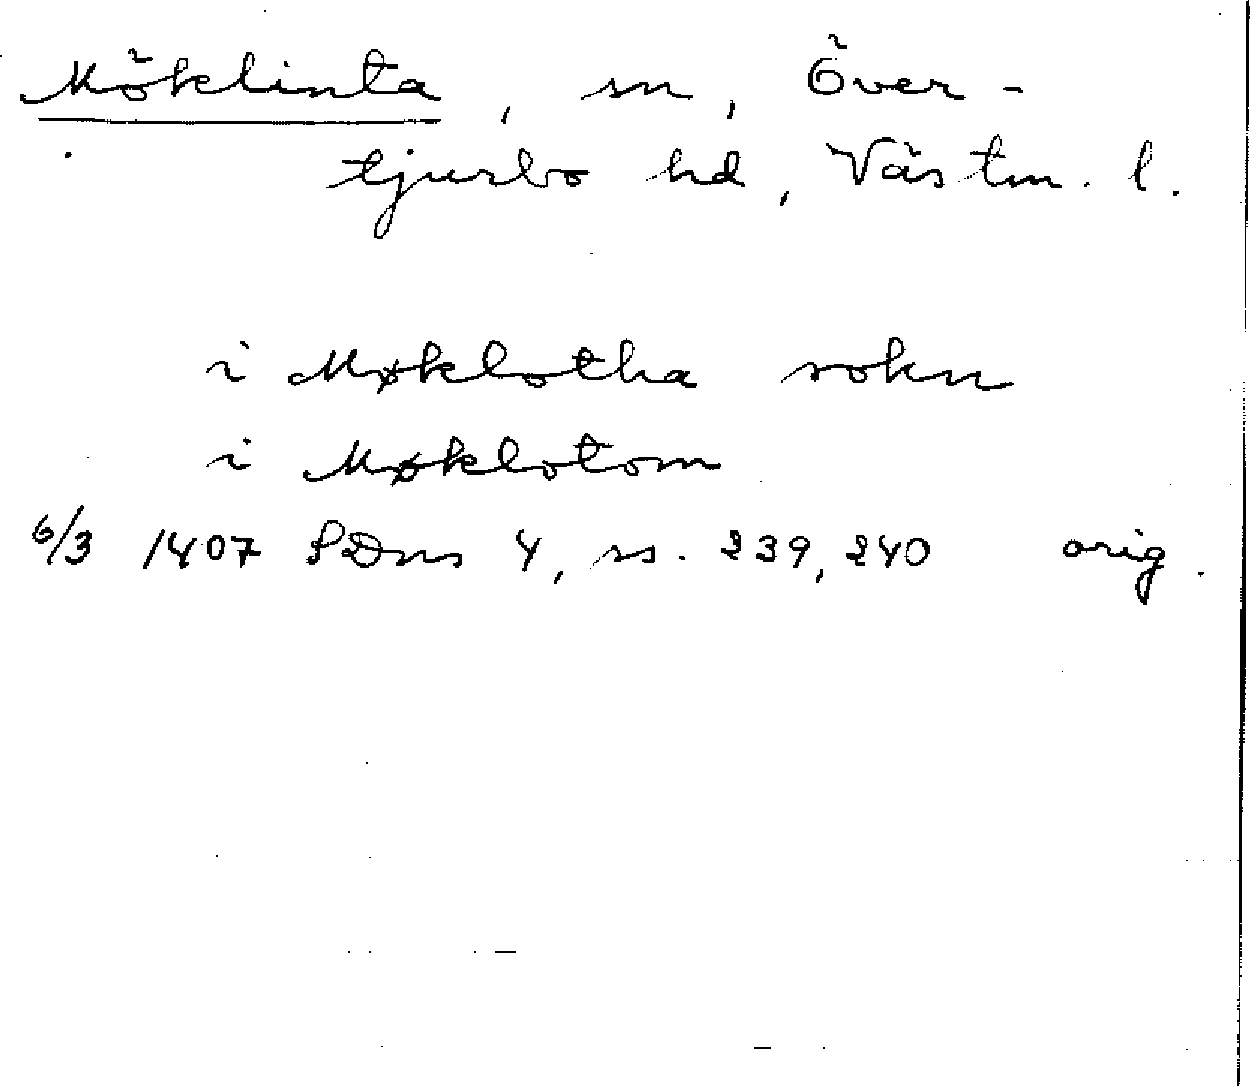 Möklinta, sn, Över-
tjurbo hd, Västm. l.
i Møklotha sokn
i Møklotom
6/3 1407 SDns 4, ss. 239, 240 orig.